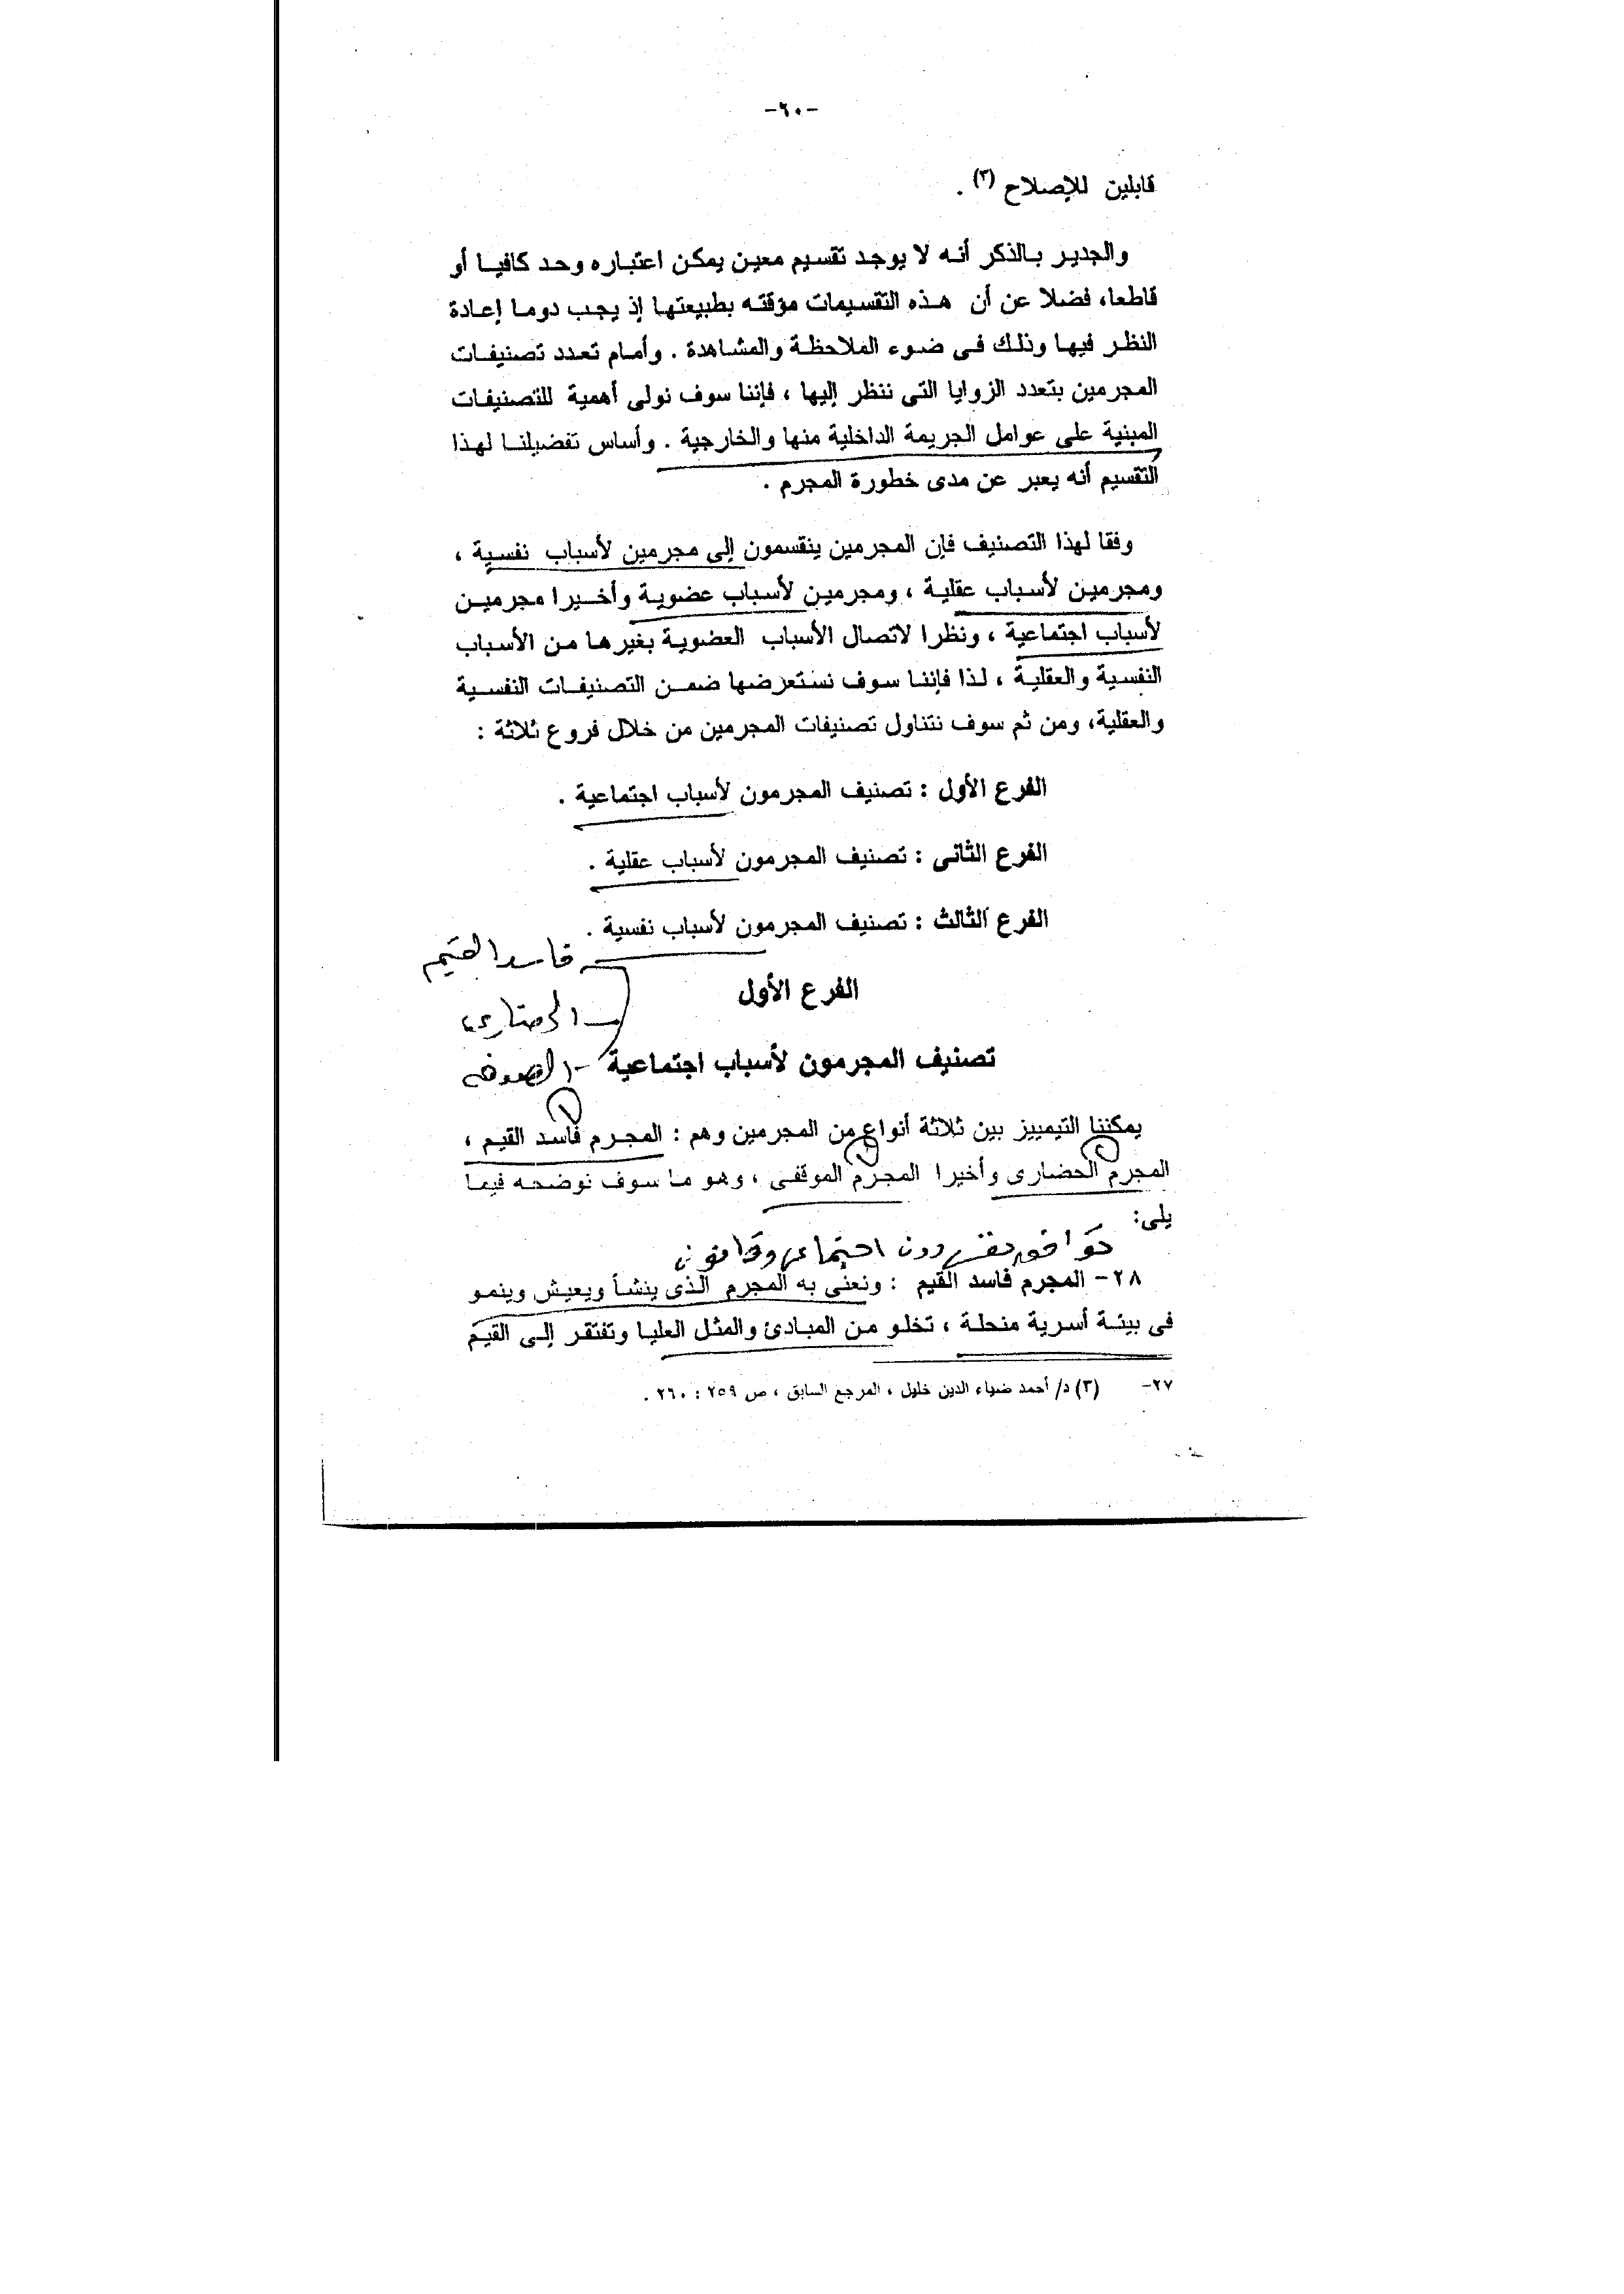 -٦٠-
قابلين للإصلاح (٣) .
والجدير بالذكر أنه لا يوجد تقسيم معين يمكن اعتباره وحد كافيا أو
قاطعا، فضلا عن أن هذه التقسيمات مؤقته بطبيعتها إذ يجب دوما إعادة
النظر فيها وذلك فى ضوء الملاحظة والمشاهدة . وأمام تعدد تصنيفات
المجرمين بتعدد الزوايا التى ننظر إليها ، فإننا سوف نولى أهمية للتصنيفات
المبنية على عوامل الجريمة الداخلية منها والخارجية . وأساس تفضيلنا لهذا
التقسيم أنه يعبر عن مدى خطورة المجرم .
وفقا لهذا التصنيف فإن المجرمين ينقسمون إلى مجرمين لأسباب نفسية ،
ومجرمين لأسباب عقلية ، ومجرمين لأسباب عضوية وأخيرا مجرمين
لأسباب اجتماعية ، ونظرا لاتصال الأسباب العضوية بغيرها من الأسباب
النفسية والعقلية ، لذا فإننا سوف نستعرضها ضمن التصنيفات النفسية
والعقلية، ومن ثم سوف نتناول تصنيفات المجرمين من خلال فروع ثلاثة :
الفرع الأول : تصنيف المجرمون لأسباب اجتماعية .
الفرع الثانى : تصنيف المجرمون لأسباب عقلية .
الفرع الثالث : تصنيف المجرمون لأسباب نفسية .
فاسد القيم
الفرع الأول
الحضارى
تصنيف المجرمون لأسباب اجتماعية
يمكننا التيمييز بين ثلاثة أنواع من المجرمين وهم : المجرم فاسد القيم ،
المجرم الحضارى وأخيرا المجرم الموقفى ، وهو ما سوف نوضحه فيما
يلى:
٢٨- المجرم فاسد القيم : ونعنى به المجرم الذى ينشأ ويعيش وينمو
فى بيئة أسرية منحلة ، تخلو من المبادئ والمثل العليا وتفتقر إلى القيم
٢٧- (٣) د/ أحمد ضياء الدين خليل ، المرجع السابق ، ص ٢٥٩ : ٢٦٠ .